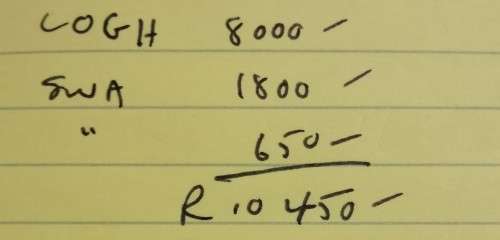 COGH 8000 –
SWA 1800 –
" 650 –
R 10 450 –